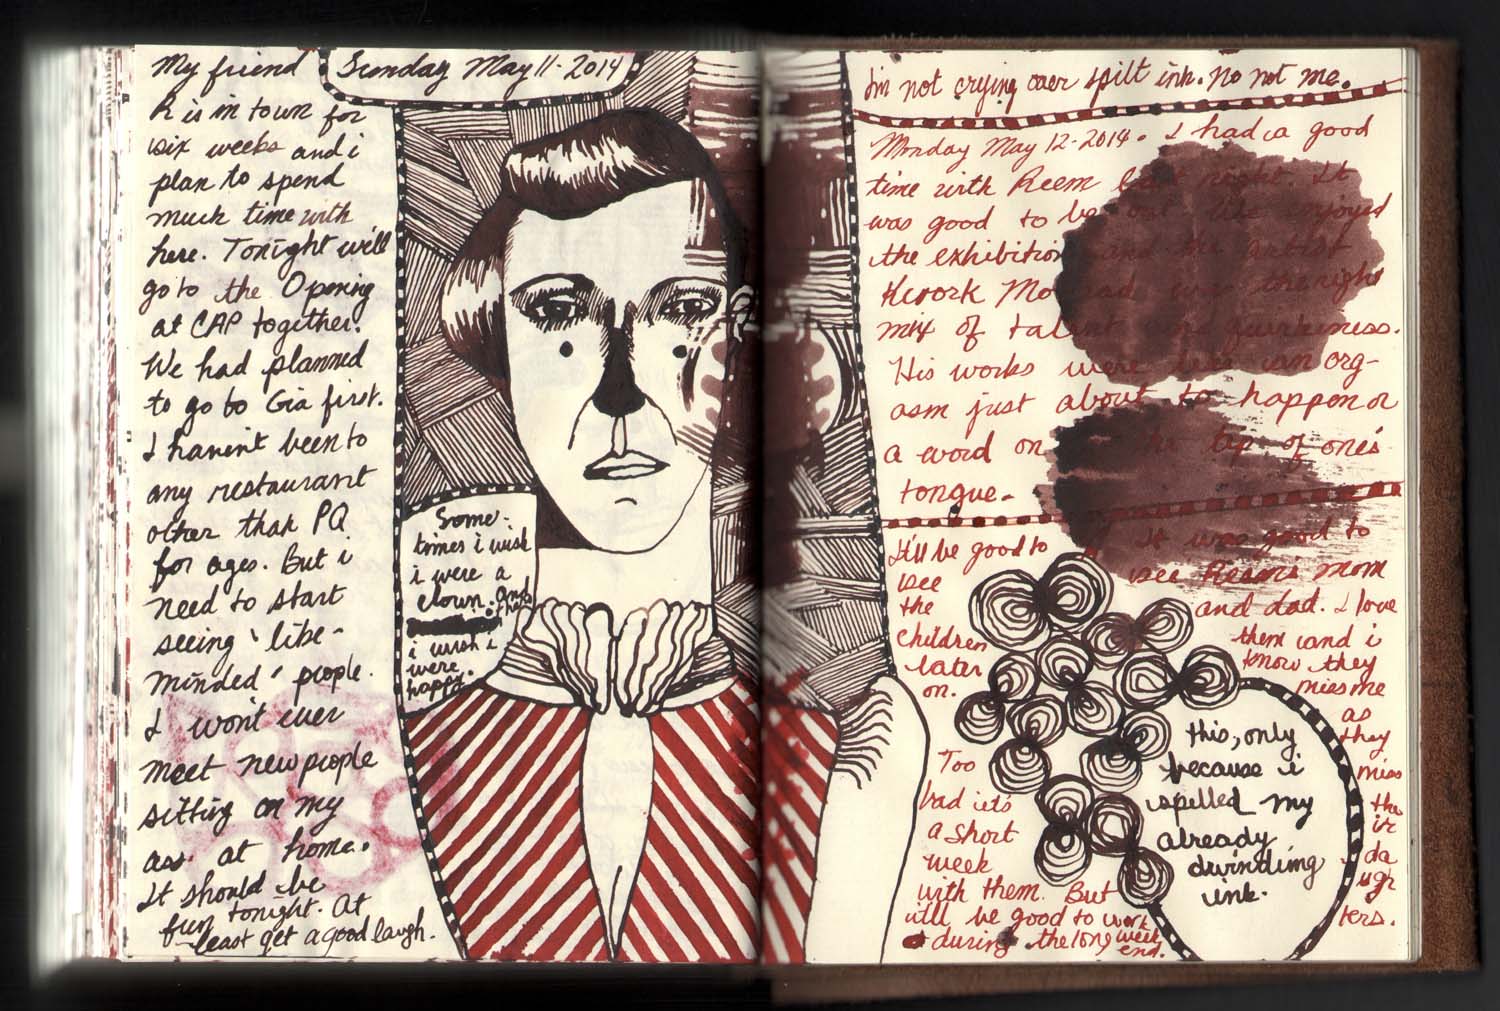 Sunday May 11-2014
My friend
R is in town for
six weeks and i
plan to spend
much time with
here. Tonight will
go to the Opening
at CAP together.
We had planned
to go to Gia first.
I havent been to
any restaurant
other than PQ
for ages. But i
need to start
seeing 'like-
minded' people.
I won't ever
meet new people
sitting on my
ass at home.
It should be
fun tonight. At
least get a good laugh.
Some-
times i wish
i were a
clown. and
i wish i
were
happy.
I'm not crying over spilt ink. No not me.
Monday May 12-2014. I had a good
time with Reem last night. It
was good to be out. We enjoyed
the exhibition and the artist
Mo was the right
mix of talent and quirkiness.
His works were like an org-
asm just about to happen or
a word on the tip of one's
tongue.
It'll be good to
see
the
children
later
on.
It was good to
see Reems mom
and dad. I love
them and i
know they
miss me
as
they
miss
the
ir
da
ugh
ters.
Too
bad it's
a short
week
with them. But
it'll be good to work
during the long week
end.
this, only
because i
spilled my
already
dwindling
ink.